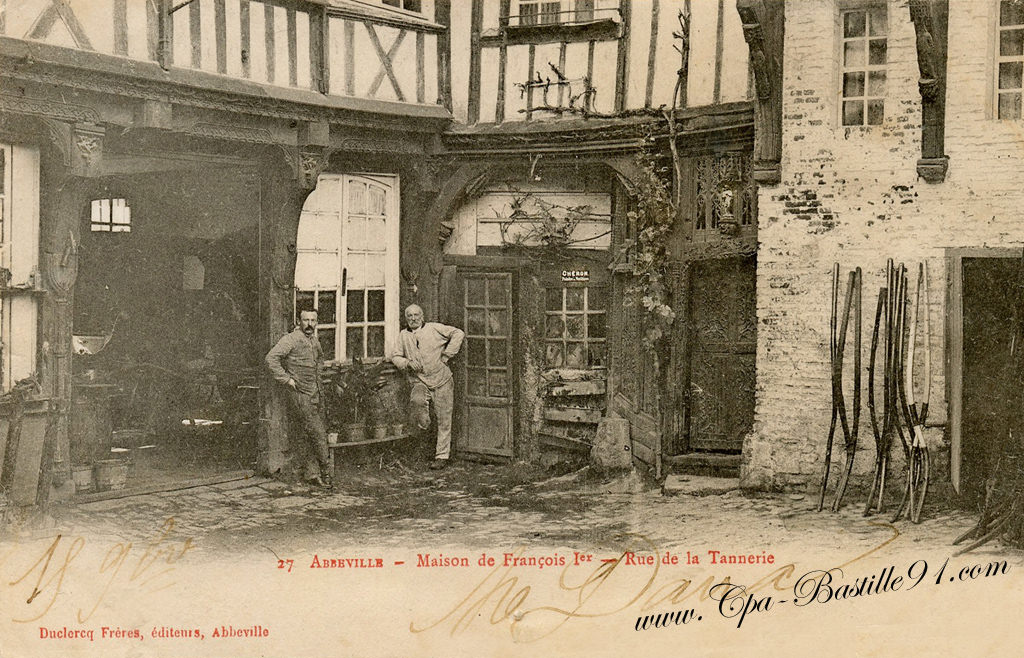 CHÉRON
27 ABBEVILLE — Maison de François Ier — Rue de la Tannerie
www.Cpa-Bastille91.com
Duclercq Frères, éditeurs, Abbeville